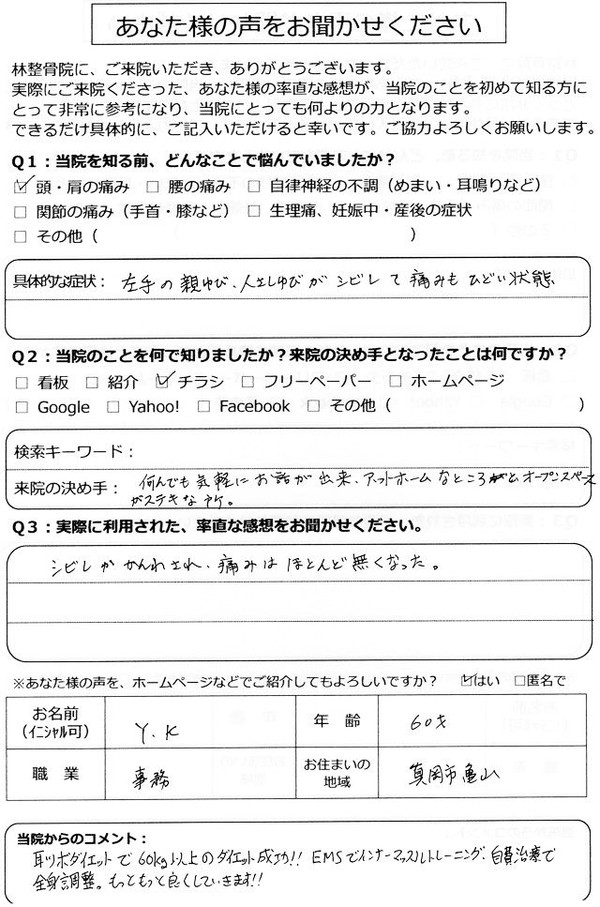 あなた様の声をお聞かせください
林整骨院に、ご来院いただき、ありがとうございます。
実際にご来院くださった、あなた様の率直な感想が、当院のことを初めて知る方に
とって非常に参考になり、当院にとっても何よりの力となります。
できるだけ具体的に、ご記入いただけると幸いです。ご協力よろしくお願いします。
Q1：当院を知る前、どんなことで悩んでいましたか？
☑ 頭・肩の痛み □ 腰の痛み □ 自律神経の不調（めまい・耳鳴りなど）
□ 関節の痛み（手首・膝など） □ 生理痛、妊娠中・産後の症状
□ その他（ ）
具体的な症状： 左手の親ゆび、人さしゆびが シビレて 痛みも ひどい状態、
Q2：当院のことを何で知りましたか？来院の決め手となったことは何ですか？
□ 看板 □ 紹介 ☑ チラシ □ フリーペーパー □ ホームページ
□ Google □ Yahoo! □ Facebook □ その他（ ）
検索キーワード：
来院の決め手： 何んでも気軽に お話が 出来、アットホーム なところ と オープンスペース
がステキな所。
Q3：実際に利用された、率直な感想をお聞かせください。
シビレが かんわされ、痛みは ほとんど無くなった。
※あなた様の声を、ホームページなどでご紹介してもよろしいですか？ ☑はい □匿名で
お名前 Y.K 年 齢 60才
（イニシャル可）
職 業 事務 お住まいの 真岡市亀山
地域
当院からのコメント：
耳ツボダイエットで 60kg以上のダイエット成功!! EMSでインナーマッスルトレーニング、自費治療で
全身調整。もっともっと良くしていきます!!